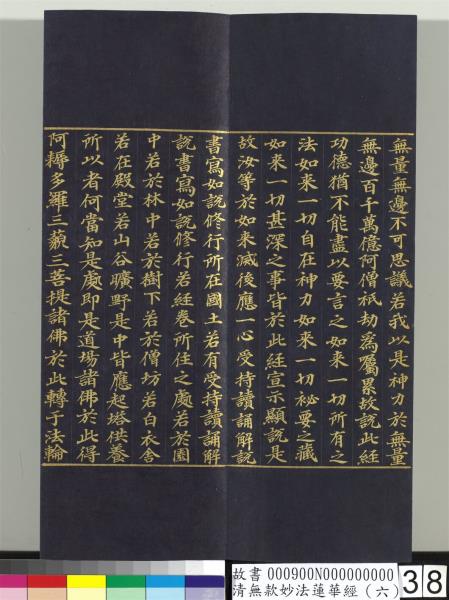 無量無邊不可思議若我以是神力於無量
無邊百千萬億阿僧祇劫為囑累故說此經
功德猶不能盡以要言之如來一切所有之
法如來一切自在神力如來一切祕要之藏
如來一切甚深之事皆於此經宣示顯說是
故汝等於如來滅後應一心受持讀誦解說
書寫如說修行所在國土若有受持讀誦解
說書寫如說修行若經卷所住之處若於園
中若於林中若於樹下若於僧坊若白衣舍
若在殿堂若山谷曠野是中皆應起塔供養
所以者何當知是處即是道場諸佛於此得
阿耨多羅三藐三菩提諸佛於此轉于法輪
故書 000900N000000000
清無款妙法蓮華經(六)
38